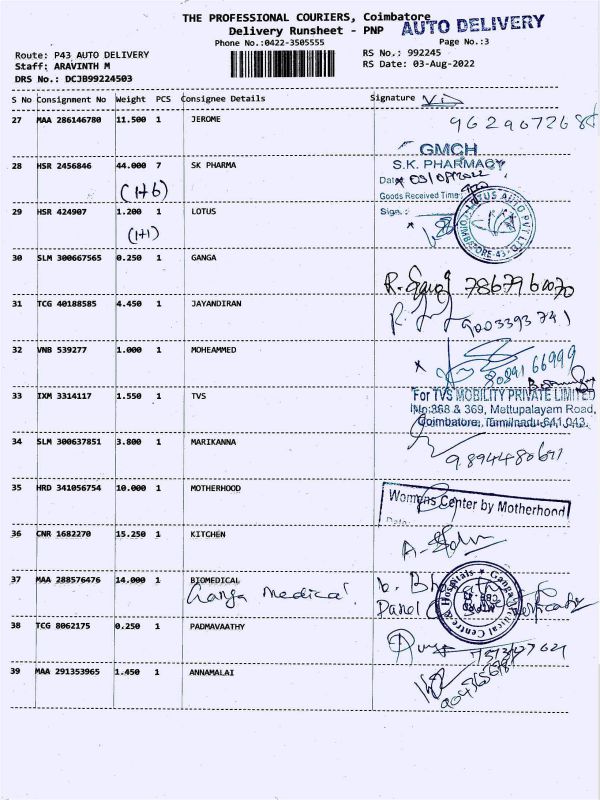 THE PROFESSIONAL COURIERS, Coimbatore
AUTO DELIVERY
Delivery Runsheet - PNP
Phone No.:0422-3505555
Page No.:3
Route: P43 AUTO DELIVERY
RS No.: 992245
Staff: ARAVINTH M
RS Date: 03-Aug-2022
DRS No.: DCJB99224503
S No Consignment No Weight PCS Consignee Details Signature
27 MAA 286146780 11.500 1 JEROME
28 HSR 2456846 44.000 7 SK PHARMA
(1+6)
GMCH
S.K. PHARMACY
Date
Goods Received Time:
Sign. :
29 HSR 424907 1.200 1 LOTUS
(1+1)
LOTUS AUTO PVT LTD
COIMBATORE-43
30 SLM 300667565 0.250 1 GANGA
31 TCG 40188585 4.450 1 JAYANDIRAN
9003393741
32 VNB 539277 1.000 1 MOHEAMMED
33 IXM 3314117 1.550 1 TVS
For TVS MOBILITY PRIVATE LIMITED
No:368 & 369, Mettupalayam Road,
Coimbatore, Tamilnadu-641 043.
34 SLM 300637851 3.800 1 MARIKANNA
35 HRD 341056754 10.000 1 MOTHERHOOD
Womens Center by Motherhood
Date:
36 CNR 1682270 15.250 1 KITCHEN
37 MAA 288576476 14.000 1 BIOMEDICAL
Ganga Medical
38 TCG 8062175 0.250 1 PADMAVAATHY
39 MAA 291353965 1.450 1 ANNAMALAI